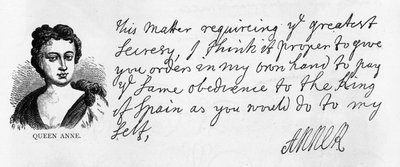 This Matter requireing ye greatest
Secresy, I think it proper to give
you orders in my own hand to pay
ye same obedience to the King
of Spain as you would do to my
self,
ANNE R
QUEEN ANNE.